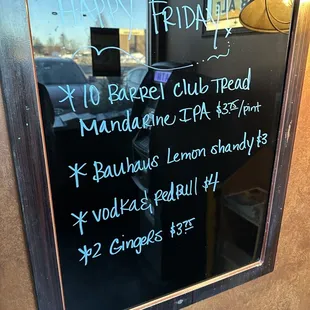 Happy Friday
* 10 Barrel Club Tread
Mandarine IPA $3.75/pint
* Bauhaus Lemon Shandy $3
* Vodka & Redbull $4
* 2 Gingers $3.75